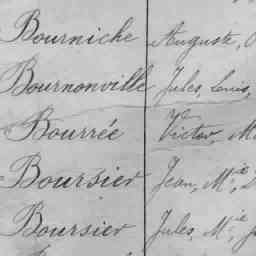 Bourniche Auguste,
Bournonville Jules, Louis,
Bourrée Victor, M
Boursier Jean, M.ie
Boursier Jules, M.ie J